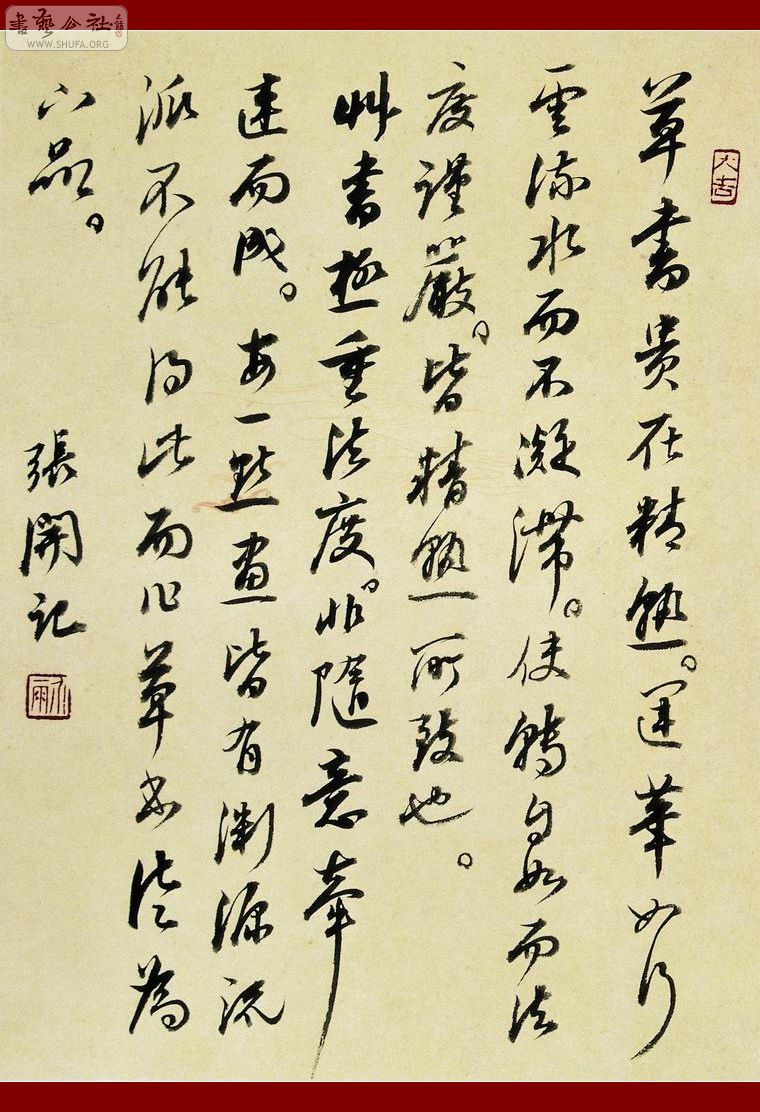 書藝公社
WWW.SHUFA.ORG
大吉
草書貴在精熟。運筆如行
雲流水而不凝滯。使轉自如而法
度謹嚴。皆精熟所致也。
艸書極重法度。非隨意牽
連而成。每一點畫皆有淵源流
派不能得此而作草書為
下品。
張開記